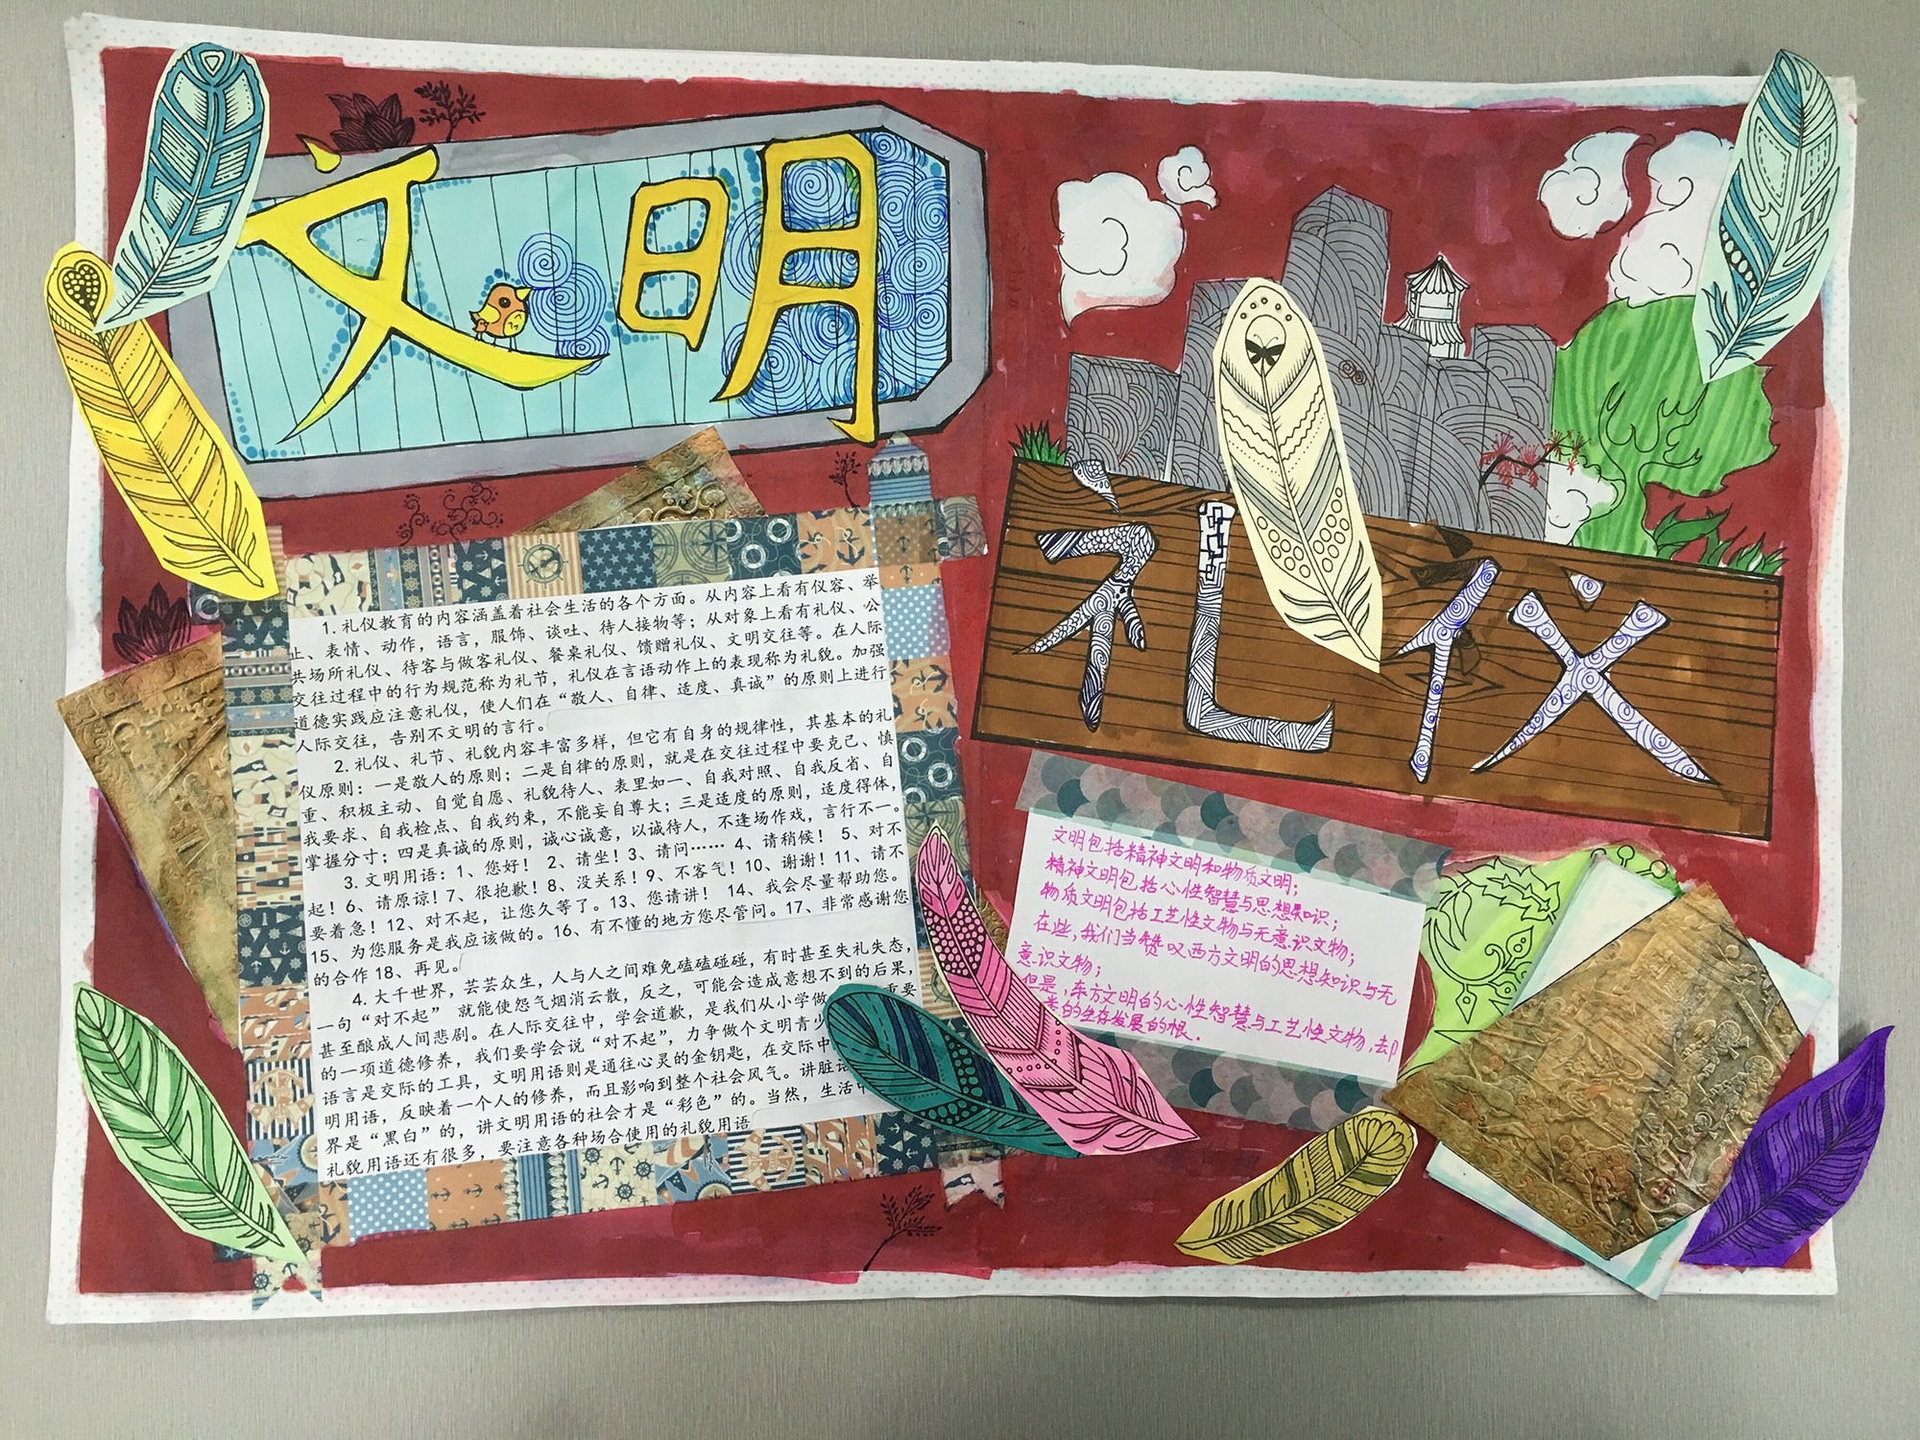 文明
礼仪
1.礼仪教育的内容涵盖着社会生活的各个方面。从内容上看有仪容、举
止、表情、动作，语言，服饰、谈吐、待人接物等；从对象上看有礼仪、公
共场所礼仪、待客与做客礼仪、餐桌礼仪、馈赠礼仪、文明交往等。在人际
交往过程中的行为规范称为礼节，礼仪在言语动作上的表现称为礼貌。加强
道德实践应注意礼仪，使人们在“敬人、自律、适度、真诚”的原则上进行
人际交往，告别不文明的言行。
2.礼仪、礼节、礼貌内容丰富多样，但它有自身的规律性，其基本的礼
仪原则：一是敬人的原则；二是自律的原则，就是在交往过程中要克己、慎
重、积极主动、自觉自愿、礼貌待人、表里如一、自我对照、自我反省、自
我要求、自我检点、自我约束，不能妄自尊大；三是适度的原则，适度得体，
掌握分寸；四是真诚的原则，诚心诚意，以诚待人，不逢场作戏，言行不一。
3.文明用语：1、您好！ 2、请坐！3、请问…… 4、请稍候！ 5、对不
起！6、请原谅！7、很抱歉！8、没关系！9、不客气！10、谢谢！11、请不
要着急！12、对不起，让您久等了。13、您请讲！ 14、我会尽量帮助您。
15、为您服务是我应该做的。16、有不懂的地方您尽管问。17、非常感谢您
的合作 18、再见。
4.大千世界，芸芸众生，人与人之间难免磕磕碰碰，有时甚至失礼失态，
一句“对不起” 就能使怨气烟消云散，反之，可能会造成意想不到的后果，
甚至酿成人间悲剧。在人际交往中，学会道歉，是我们从小学做 重要
的一项道德修养，我们要学会说“对不起”，力争做个文明青少
语言是交际的工具，文明用语则是通往心灵的金钥匙，在交际中
明用语，反映着一个人的修养，而且影响到整个社会风气。讲脏话
界是“黑白”的，讲文明用语的社会才是“彩色”的。当然，生活中
礼貌用语还有很多，要注意各种场合使用的礼貌用语
文明包括精神文明和物质文明；
精神文明包括心性智慧与思想知识；
物质文明包括工艺性文物与无意识文物；
在些，我们当赞叹西方文明的思想知识与无
意识文物；
但是，东方文明的心性智慧与工艺性文物，却
类的生存发展的根.